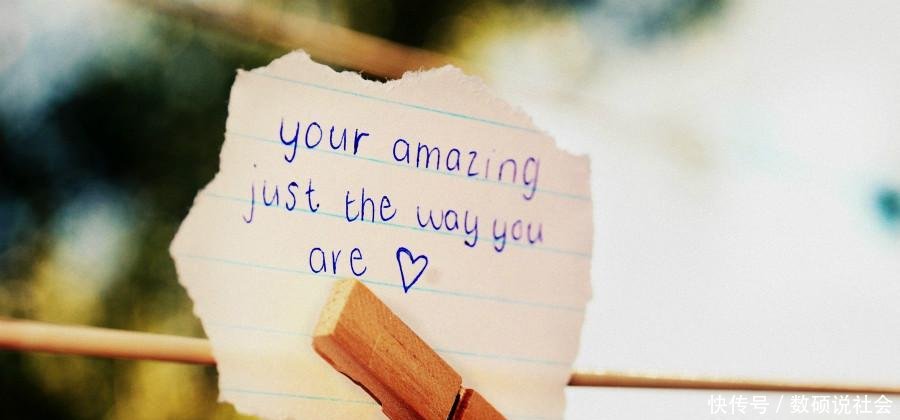 your amazing
just the way you
are ♡
快传号 / 数硕说社会